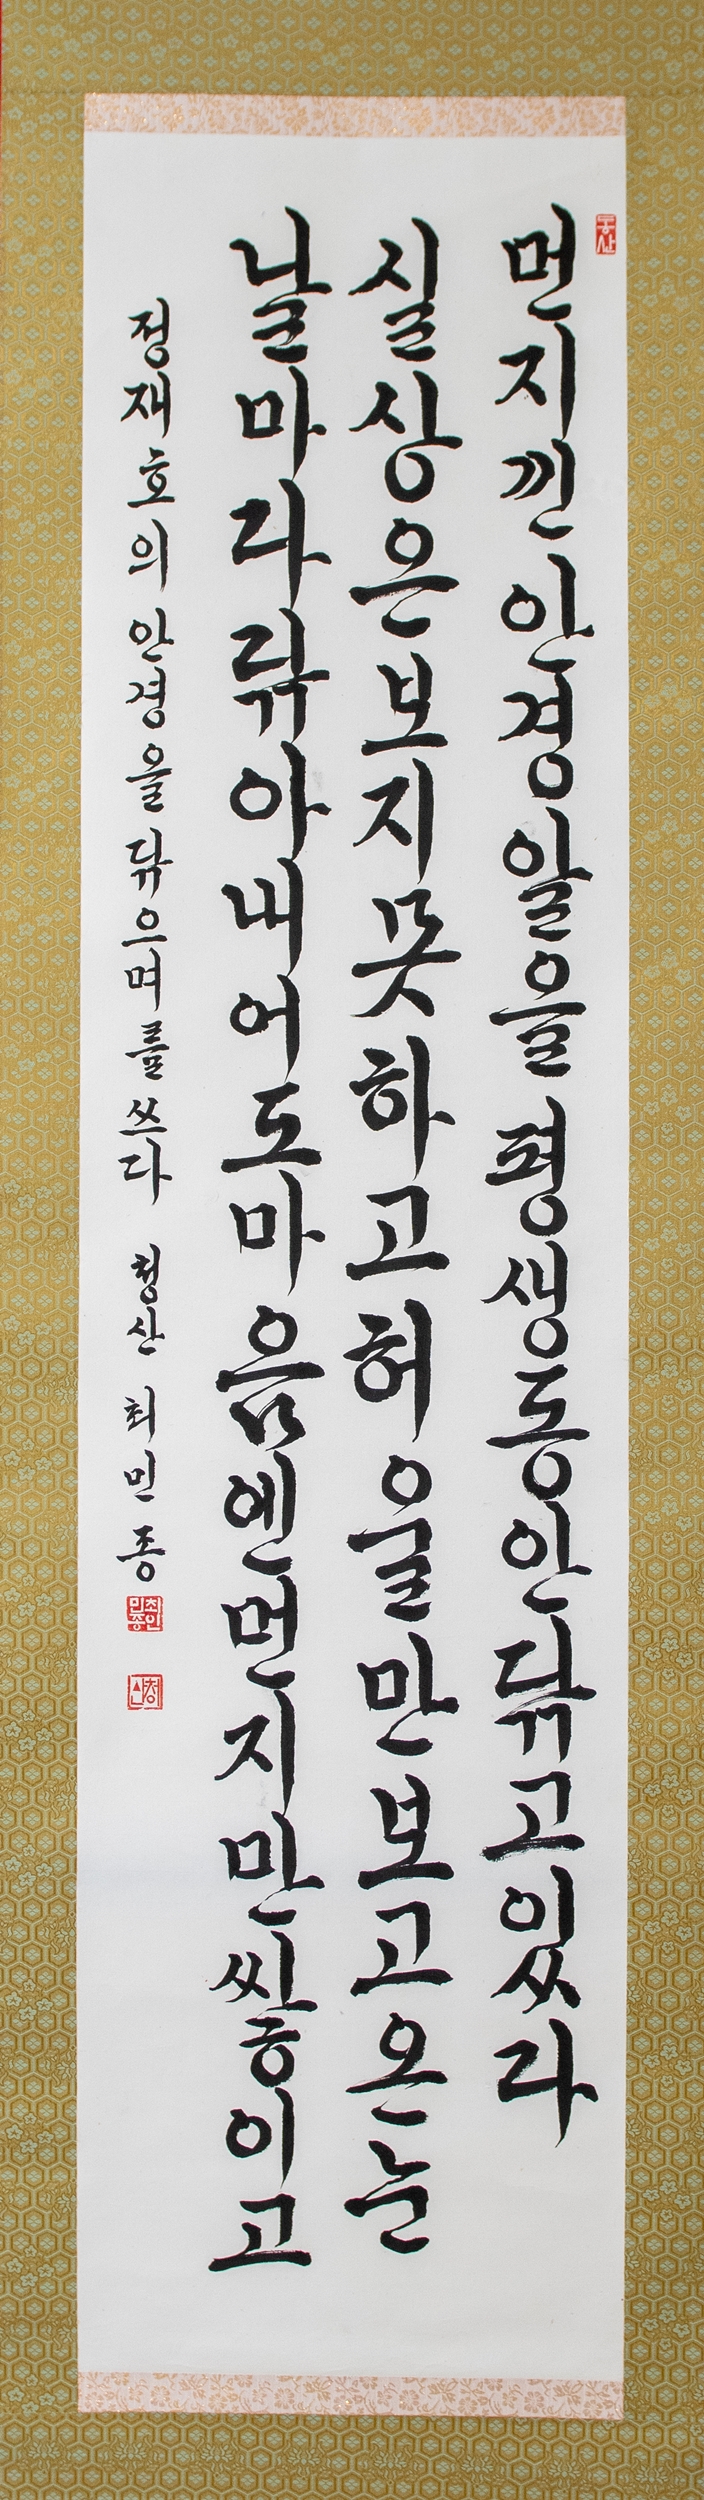 먼지낀안경알을평생동안닦고있다
실상은보지못하고허울만보고온눈
날마다닦아내어도마음엔먼지만쌓이고
정재호의 안경을 닦으며를 쓰다 청산 최민종
청산